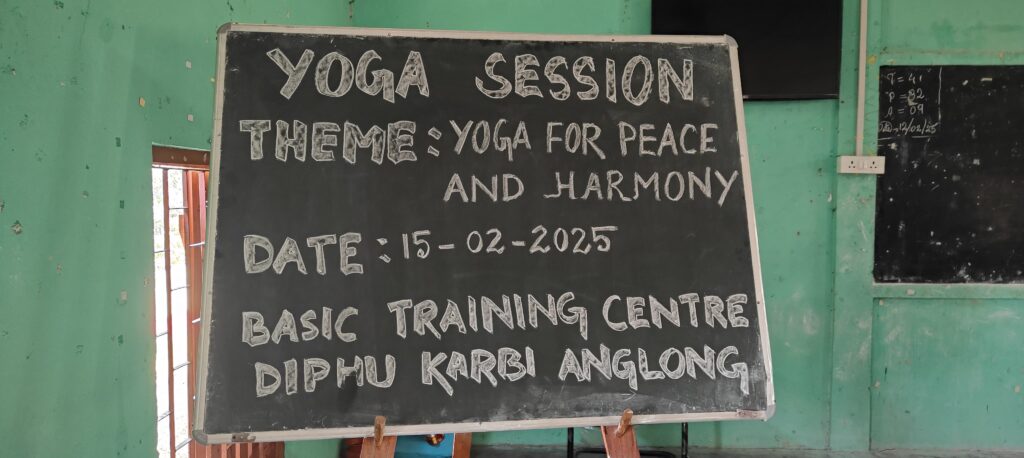 YOGA SESSION
THEME: YOGA FOR PEACE
AND HARMONY
DATE: 15-02-2025
BASIC TRAINING CENTRE
DIPHU KARBI ANGLONG
T = 41
P = 32
A = 09